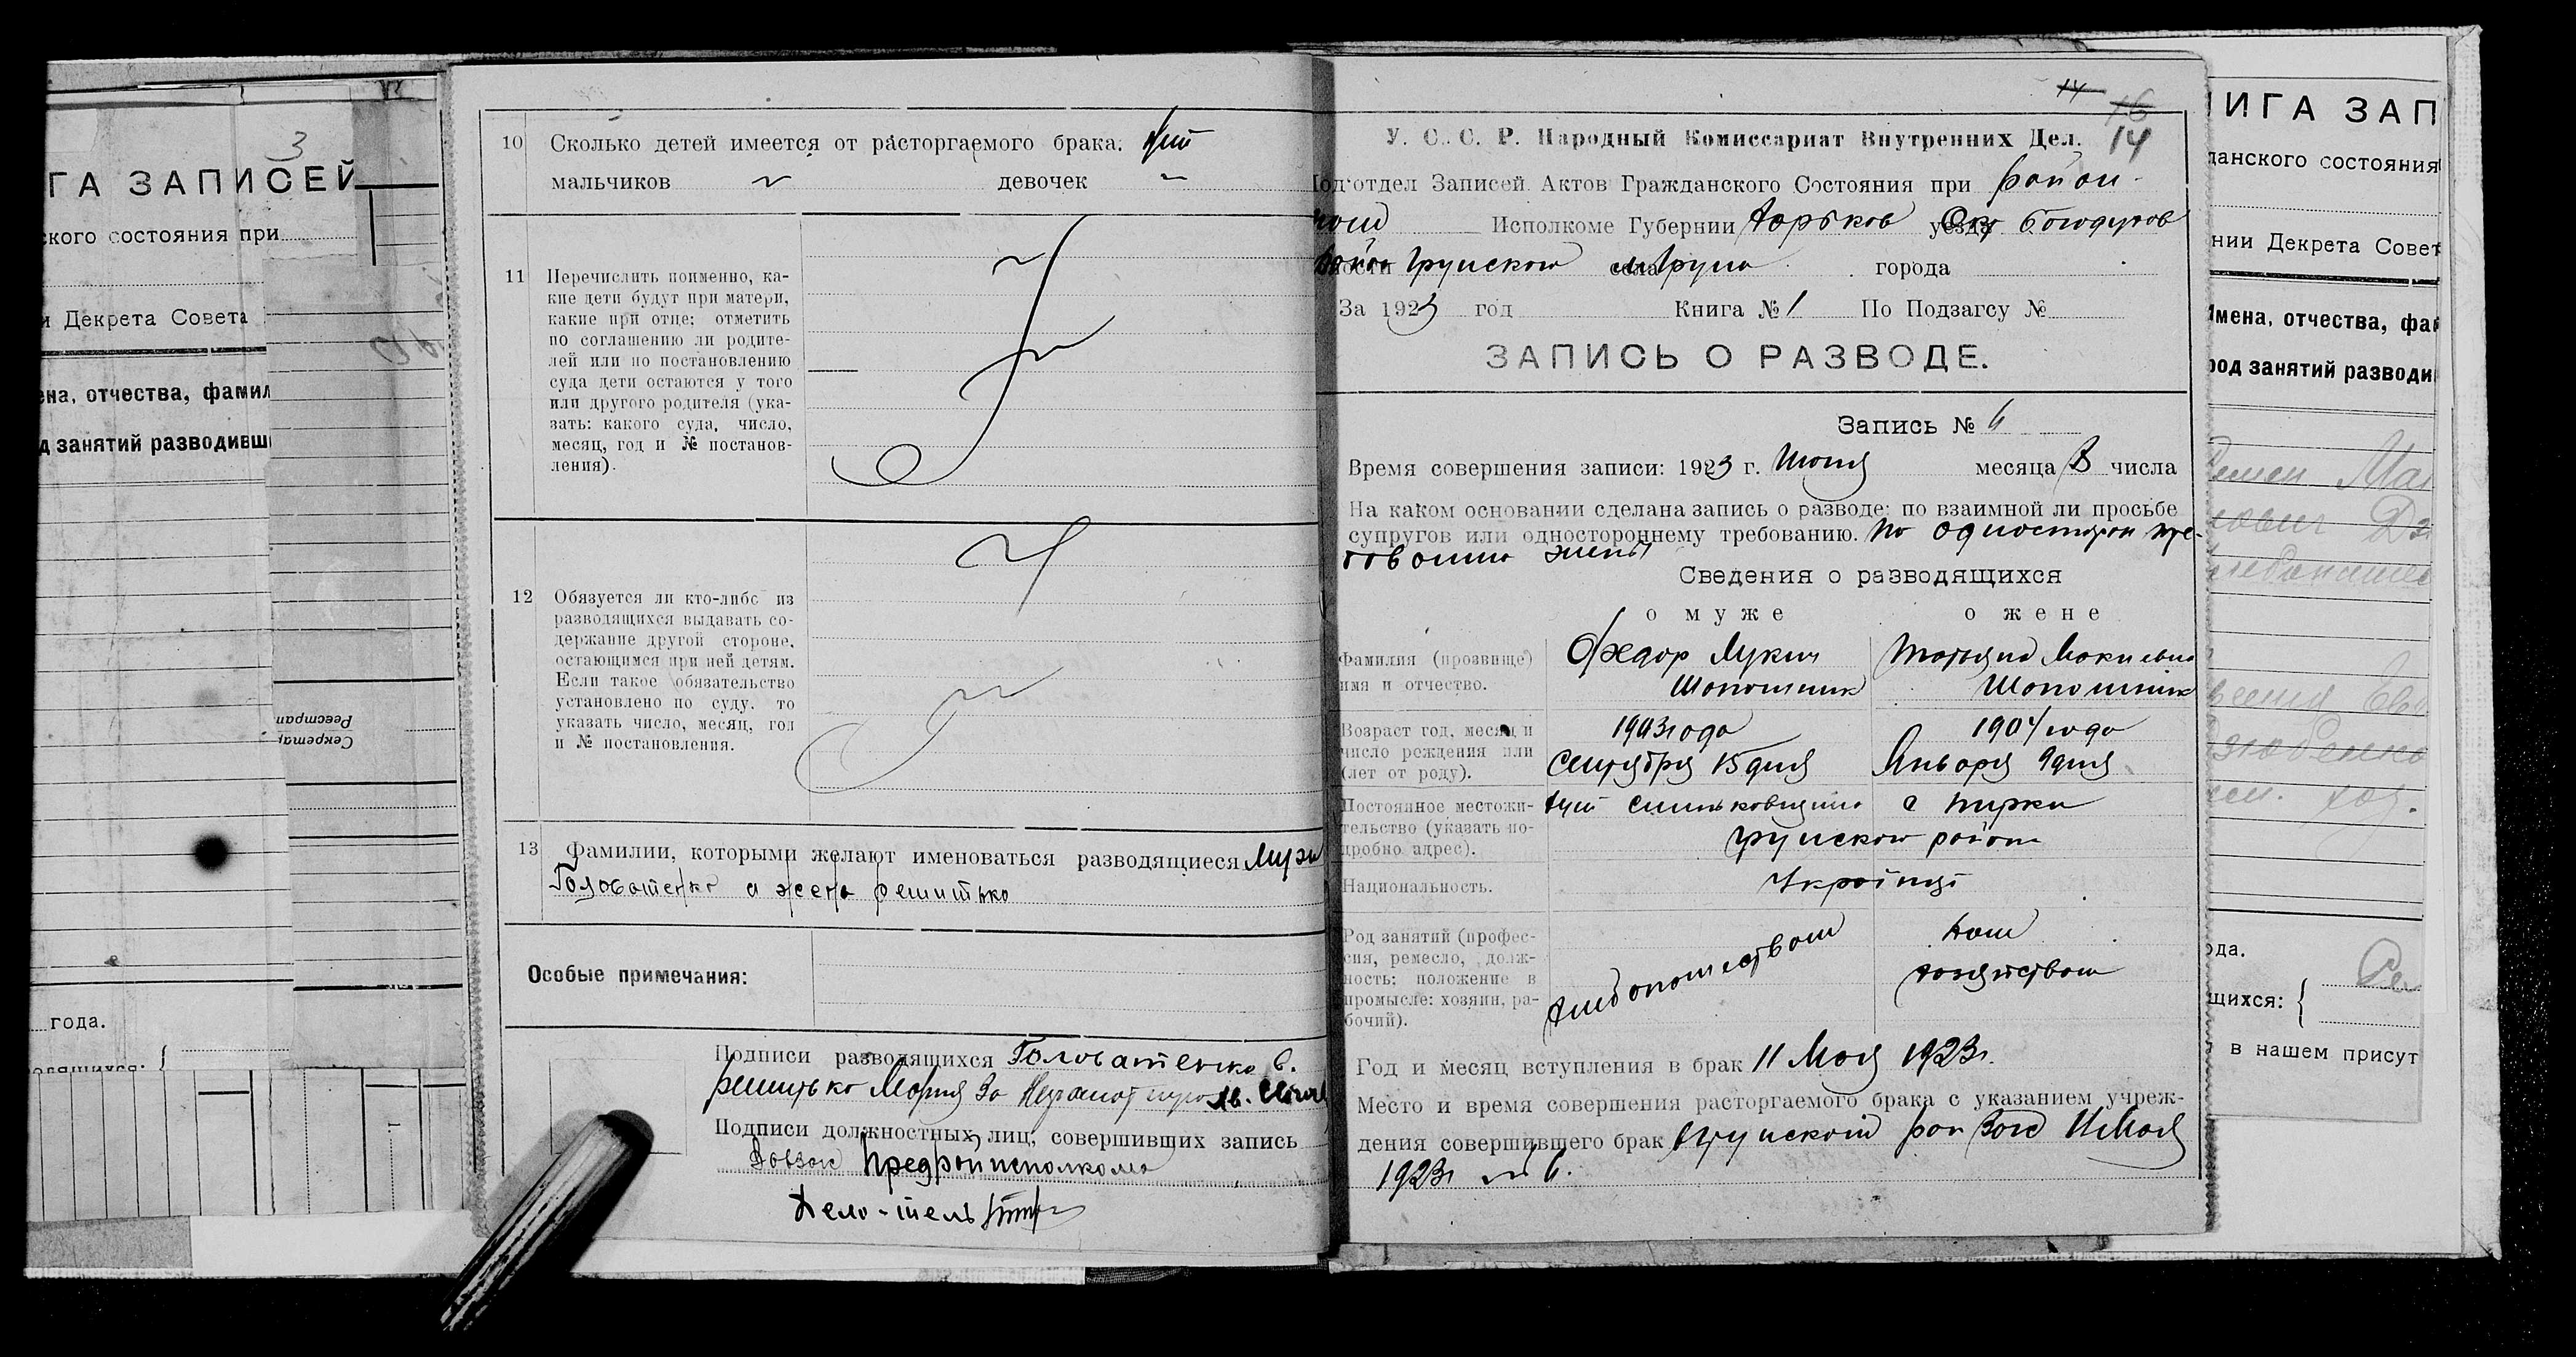 3
ГА ЗАПИСЕЙ
ского состояния при
и Декрета Совета
ена, отчества, фамил
д занятий разводивш
Регистрат
Секретар
года.
10 Сколько детей имеется от расторгаемого брака.
мальчиков девочек
11 Перечислить поименно, ка-
кие дети будут при матери,
какие при отце; отметить
по соглашению ли родите-
лей или по постановлению
суда дети остаются у того
или другого родителя (ука-
зать: какого суда, число,
месяц, год и № постанов-
ления).
12 Обязуется ли кто-либо из
разводящихся выдавать со-
держание другой стороне,
остающимся при ней детям.
Если такое обязательство
установлено по суду, то
указать число, месяц, год
и № постановления.
13 Фамилии, которыми желают именоваться разводящиеся Муж
Головатенко а жена Решитько
Особые примечания:
Подписи разводящихся Головатенко
Решитько Мария За
Подписи должностных лиц, совершивших запись
Предрайисполкома
Дело-тель
14 16
У. С. С. Р. Народный Комиссариат Внутренних Дел. 14
Под'отдел Записей Актов Гражданского Состояния при район-
ном Исполкоме Губернии Харьков Окр Богодухов
Грунском с. Грунь города
За 1923 год Книга № 1 По Подзагсу №
ЗАПИСЬ О РАЗВОДЕ.
Запись № 6
Время совершения записи: 1923 г. месяца 8 числа
На каком основании сделана запись о разводе: по взаимной ли просьбе
супругов или одностороннему требованию. по односторон тре-
бованию жены
Сведения о разводящихся
о муже о жене
Фамилия (прозвище)
имя и отчество.
Федор Лукич Татьяна
Шапошник Шапошник
Возраст год, месяц и
число рождения или
(лет от роду).
1903 года 1904 года
Сентября 15 дня Января 9 дня
Постоянное местожи-
тельство (указать по-
дробно адрес).
хут с Пирки
Грунского район
Национальность.
Украінці
Род занятий (профес-
сия, ремесло, долж-
ность: положение в
промысле: хозяин, ра-
бочий).
Хлебопашеством
Дом
хозяйством
Год и месяц вступления в брак 11 Мая 1923г.
Место и время совершения расторгаемого брака с указанием учреж-
дения совершившего брак Грунском рай Загс 11 Мая
1923г № 6.
ИГА ЗАП
данского состояния
нии Декрета Совет
Имена, отчества, фам
род занятий разводи
ода.
щихся:
в нашем присут